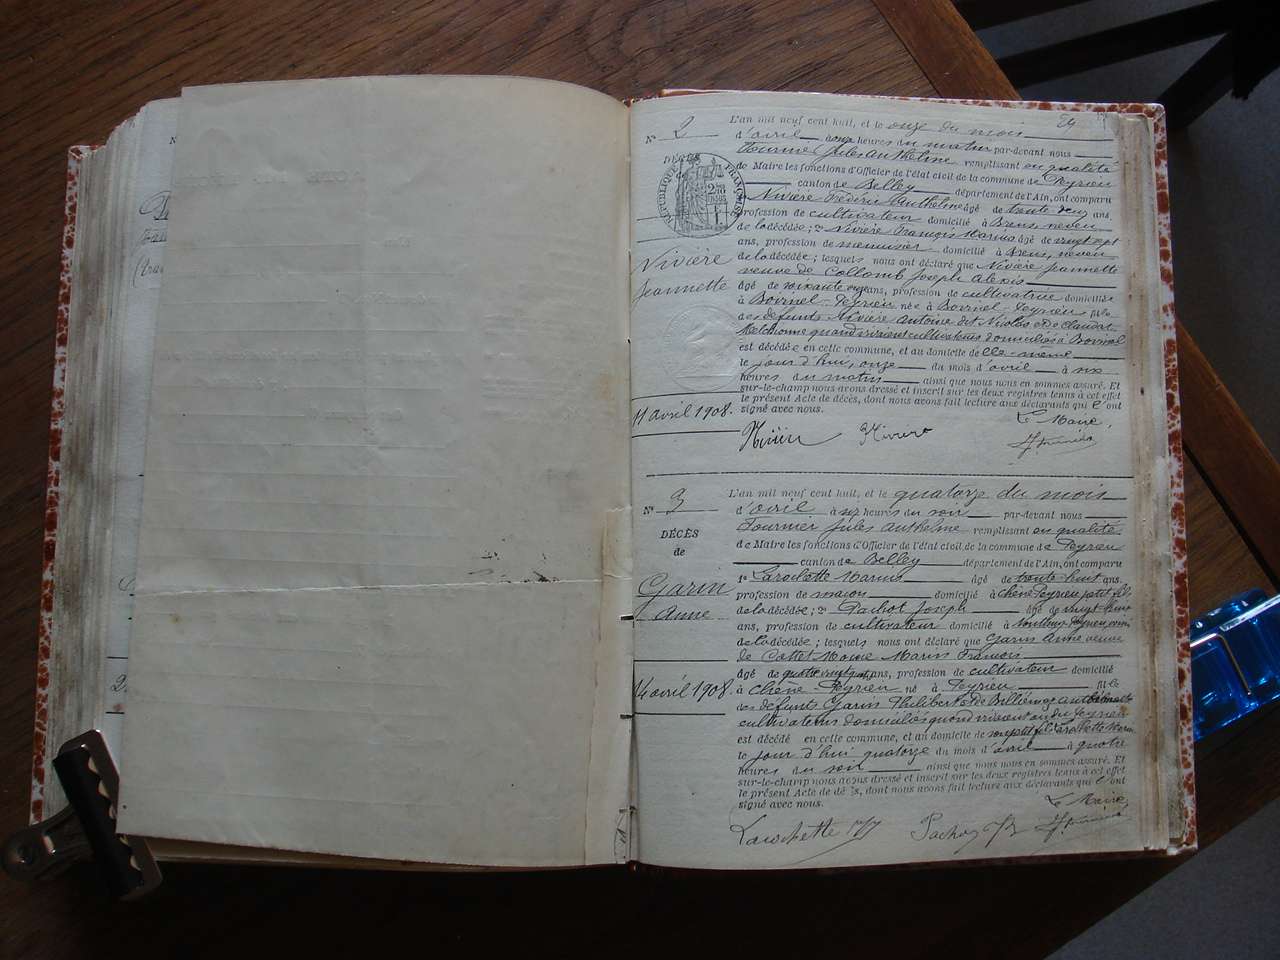 N° 2
DÉCÈS
RÉPUBLIQUE FRANÇAISE
Nivière
Jeannette
11 avril 1908.
L'an mil neuf cent huit, et le onze du mois
d'avril à onze heures du matin par-devant nous
Fournier Jules Anthelme remplissant en qualité
de Maire les fonctions d'Officier de l'état civil de la commune de Peyrieu
canton de Belley département de l'Ain, ont comparu
Nivière Frédéric Anthelme âgé de trente deux ans
profession de cultivateur domicilié à Brens neveu
de la décédée; 2° Nivière François Marius âgé de vingt sept
ans, profession de menuisier domicilié à Brens, neveu
de la décédée; lesquels nous ont déclaré que Nivière Jeannette
veuve de Collomb Joseph Alexis
âgé de soixante ans, profession de cultivatrice domiciliée
à Bovinel-Peyrieu née à Bovinel-Peyrieu fille
des défunts Nivière Antoine dit Nicolas et de Claudine
quand vivaient cultivateurs domiciliés à Bovinel
est décédée en cette commune, et au domicile de elle-même
le jour d'hui, onze du mois d'avril à six
heures du matin ainsi que nous nous en sommes assuré. Et
sur-le-champ nous avons dressé et inscrit sur les deux registres tenus à cet effet
le présent Acte de décès, dont nous avons fait lecture aux déclarants qui l'ont
signé avec nous.
Le Maire,
Nivière
N° 3
DÉCÈS
de
Garin
Anne
14 avril 1908.
L'an mil neuf cent huit, et le quatorze du mois
d'avril à six heures du soir par-devant nous
Fournier Jules Anthelme remplissant en qualité
de Maire les fonctions d'Officier de l'état civil de la commune de Peyrieu
canton de Belley département de l'Ain, ont comparu
1° Larochette Marius âgé de trente-huit ans,
profession de maçon domicilié à Chêne Peyrieu petit fils
de la décédée; 2° Pachot Joseph âgé de vingt
ans, profession de cultivateur domicilié à Peyrieu
de la décédée; lesquels nous ont déclaré que Garin Anne veuve
de Cottet Moine Marin François
âgé de quatre vingt ans, profession de cultivateur domicilié
à Chêne Peyrieu né à Peyrieu fille
des défunts Garin Philibert et de Billiémaz Anthelmette
cultivateurs domiciliés quand vivaient au dit Peyrieu
est décédé en cette commune, et au domicile de son petit fils Larochette Marin
le jour d'hui quatorze du mois d'avril à quatre
heures du soir ainsi que nous nous en sommes assuré. Et
sur-le-champ nous avons dressé et inscrit sur les deux registres tenus à cet effet
le présent Acte de décès, dont nous avons fait lecture aux déclarants qui l'ont
signé avec nous.
Le Maire,
Larochette